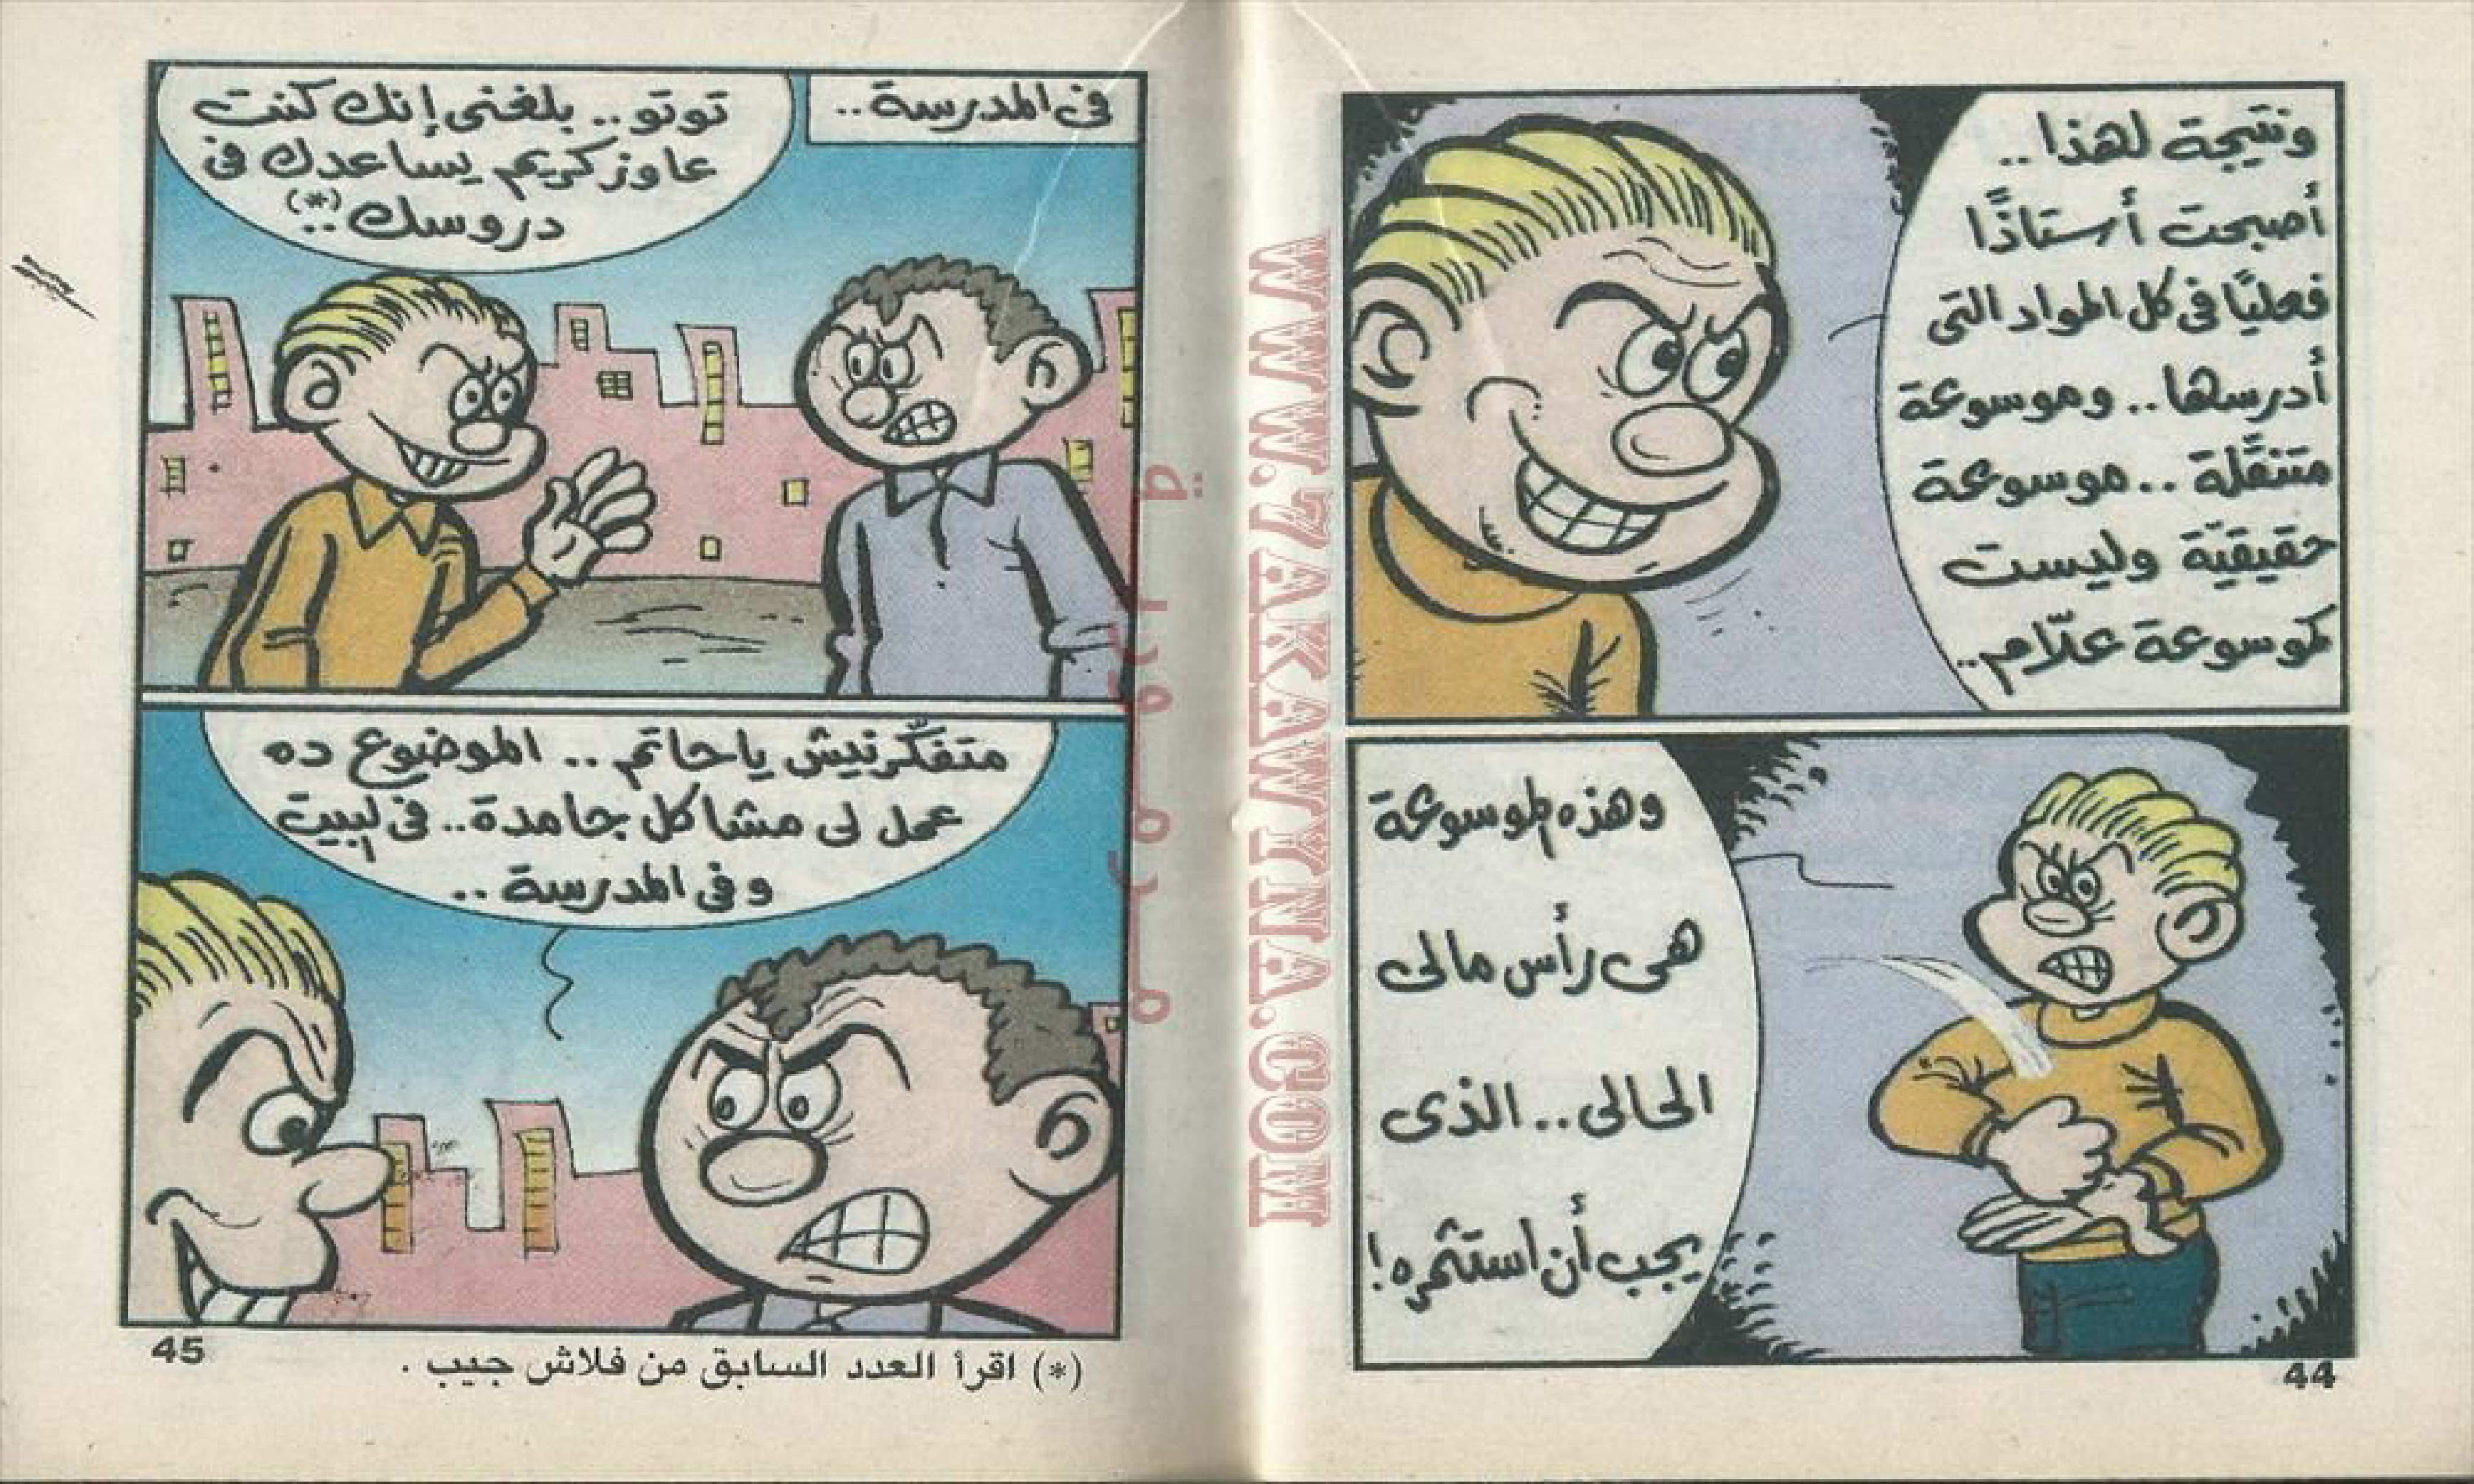 ونتيجة لهذا..
أصبحت أستاذًا
فعليًا فى كل المواد التى
أدرسها.. وموسوعة
متنقلة.. موسوعة
حقيقيّة وليست
كموسوعة علّام..
وهذه الموسوعة
هى رأس مالى
الحالى.. الذى
يجب أن استثمره!
44
فى المدرسة..
توتو.. بلغنى إنك كنت
عاوز كريم يساعدك فى
دروسك(*)..
متفكّرنيش ياحاتم.. الموضوع ده
عمل لى مشاكل جامدة.. فى البيت
وفى المدرسة..
(*) اقرأ العدد السابق من فلاش جيب .
45
WWW.7AKAWINA.COM